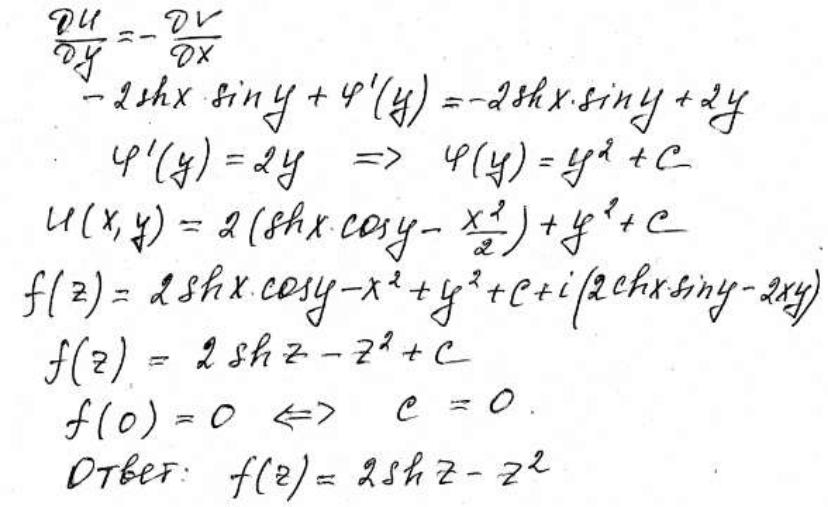 ∂u/∂y = - ∂v/∂x
- 2shx·siny + φ'(y) = -2shx·siny + 2y
φ'(y) = 2y => φ(y) = y² + C
u(x,y) = 2(shx·cosy - x²/2) + y² + C
f(z) = 2shx·cosy - x² + y² + C + i(2chx·siny - 2xy)
f(z) = 2shz - z² + C
f(0) = 0 <=> C = 0.
Ответ: f(z) = 2shz - z²